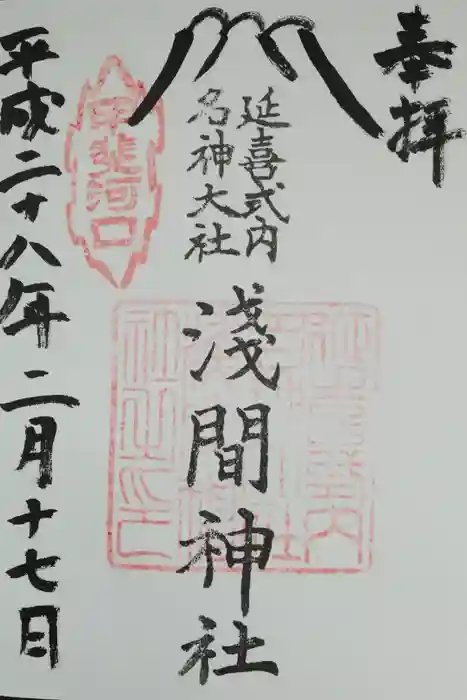 奉拝
延喜式内
名神大社
浅間神社
甲斐河口
平成二十八年二月十七日